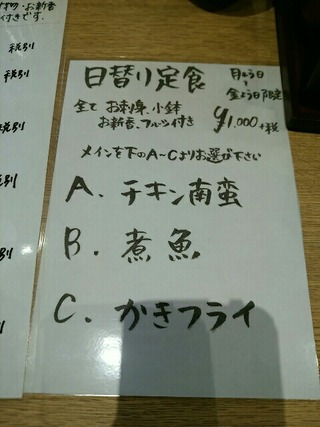 お新香
付きです.
税別
税別
税別
日替り定食
月よう日
〜
金よう日限定
全て お刺身、小鉢
お新香、フルーツ付き
¥1,000+税
メインを下のA〜Cよりお選び下さい
A. チキン南蛮
B. 煮魚
C. かきフライ